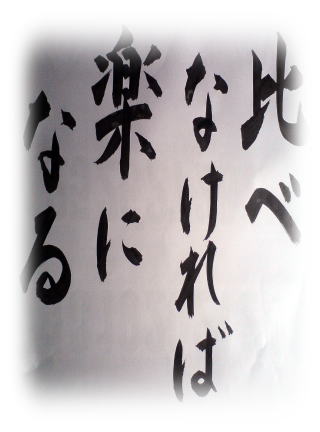 比べ
なければ
楽に
なる